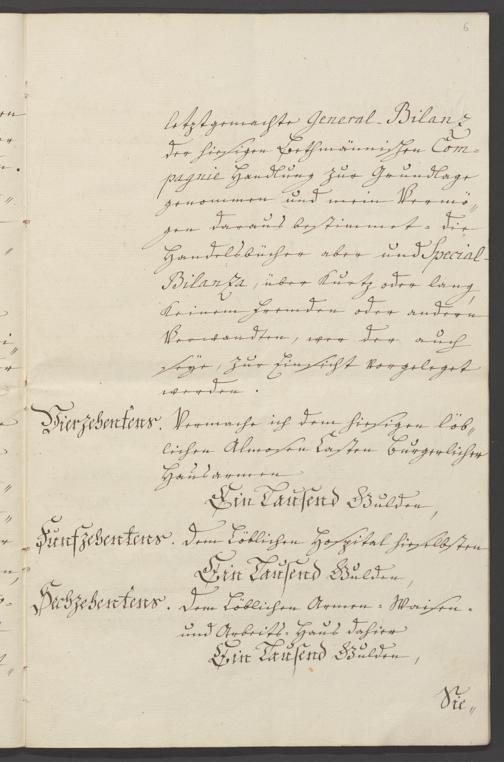 6
letztgemachte General-Bilanz
der hiesigen Bethmännischen Com-
pagnie Handlung zur Grundlage
genommen und mein Vermö-
gen daraus bestimmet, die
Handelsbücher aber und Special-
Bilanza, über Kurtz oder lang,
keinem Fremden oder andern
Verwandten, wer der auch
seye, zur Einsicht vorgeleget
werden.
Vierzehentens. Vermache ich dem hiesigen löb-
lichen Almosen Casten burgerlicher
Hausarmen
Ein Tausend Gulden,
Funfzehentens. Dem Löblichen Hospital hieselbsten
Ein Tausend Gulden,
Sechzehentens. Dem Löblichen Armen- Waisen-
und Arbeits-Haus dahier
Ein Tausend Gulden,
Sie„